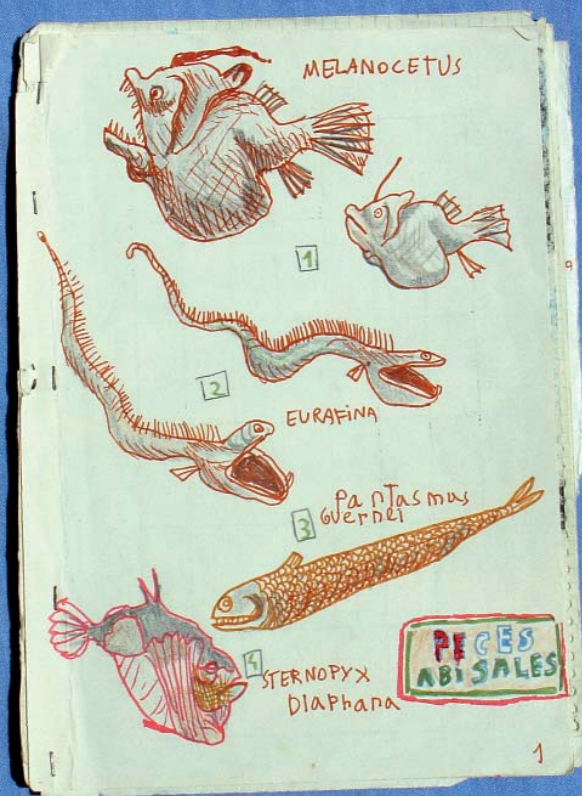 MELANOCETUS
1
2
EURAFINA
Pantasmus
3 Guernei
4
STERNOPYX
Diaphana
PECES
ABISALES
1